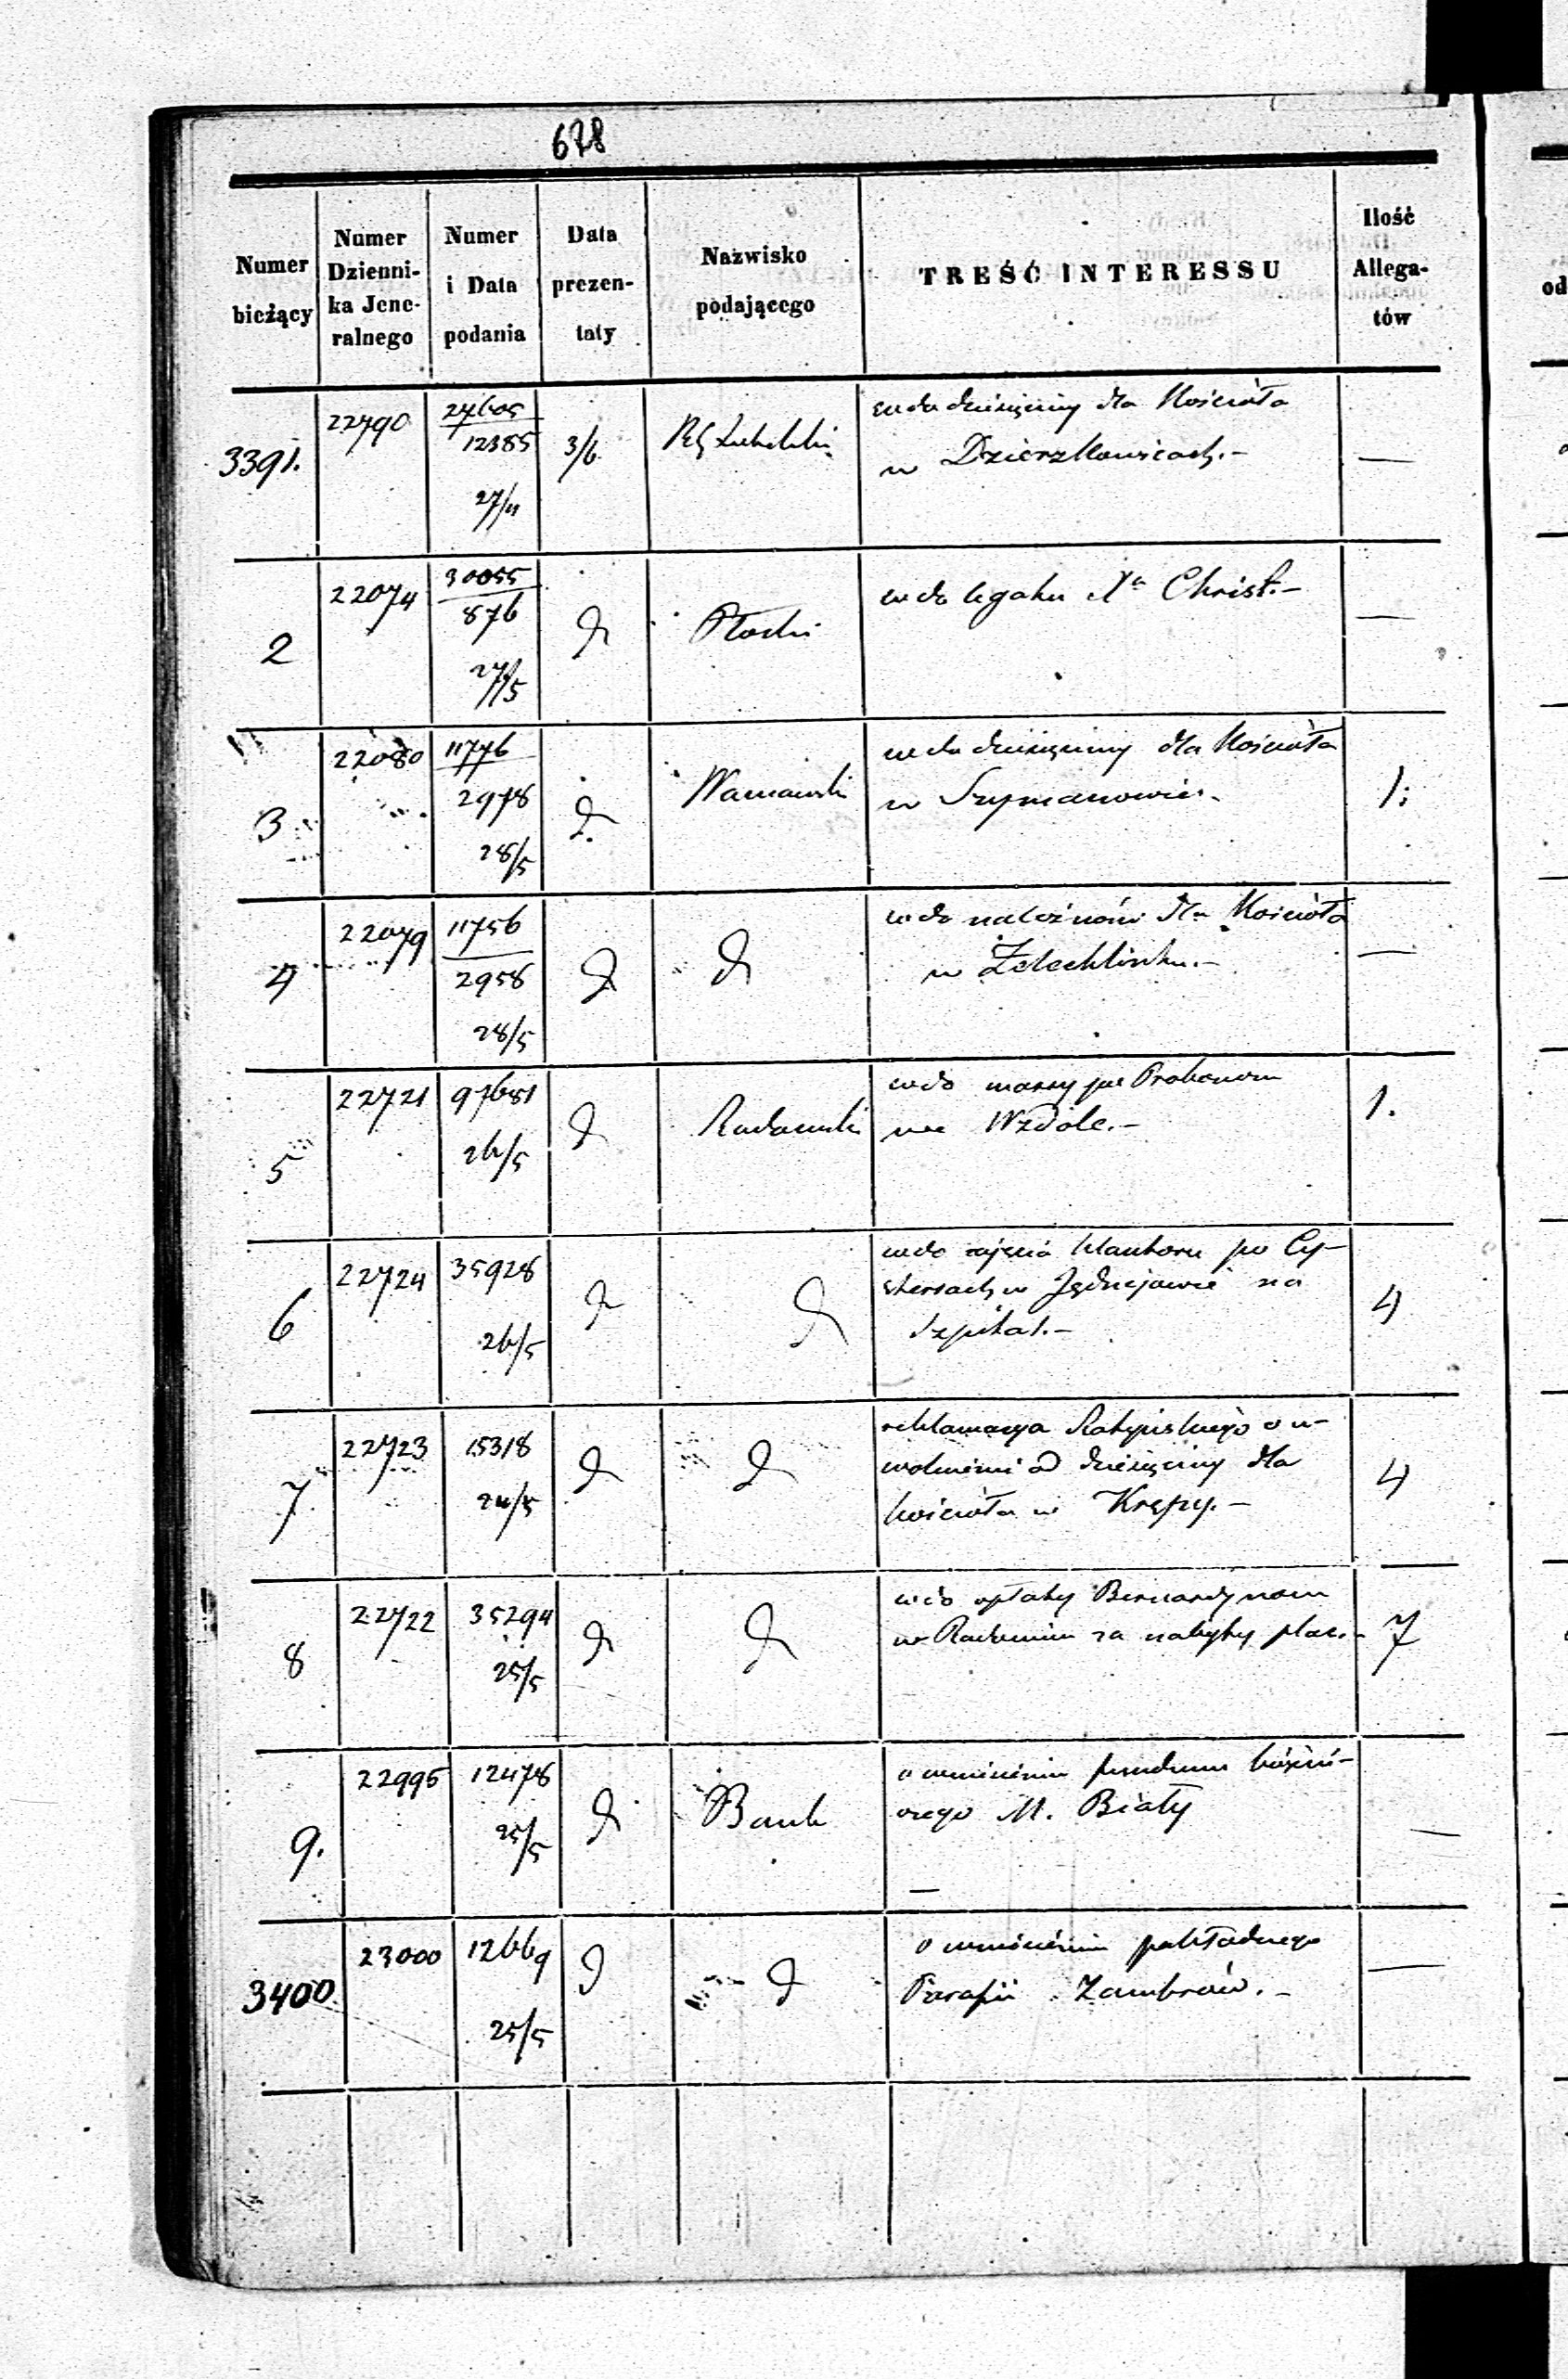 678
Numer bieżący
Numer Dzienni-ka Jene-ralnego
Numer i Data podania
Data prezen-taty
Nazwisko podającego
TREŚĆ INTERESSU
Ilość Allega-tów
3391. 22790 27605 12385 27/5 3/6 Lubelski wdo dziesięciny dla Kościoła —
w Dzierzkowicach.—
2 22074 30055 876 27/5 d Płocki wdo legatu Xa Christ.— —
3 22080 11776 2978 28/5 d Warszawski wdo dziesięciny dla Kościoła 1.
w Szymanowie.
4 22079 11756 2958 28/5 d d wdo należności dla Kościoła —
w Żelechlinku.—
5 22721 97681 26/5 d Radomski wdo massy po Proboszczu 1.
we Wzdole.—
6 22724 35928 26/5 d d wdo zajęcia klasztoru po Cy-
stersach w Jędrzejowie na 4
Szpital.—
7 22723 15318 24/5 d d reklamacya o u-
wolnienie od dziesięciny dla 4
kościoła w Krępy.—
8 22722 35294 25/5 d d wdo opłaty Bernardynom
w Radomiu za nabyty plac.— 7
9. 22995 12478 25/5 d Bank o zwrócenie funduszu
M. Biały —
—
3400 23000 12669 25/5 d d o zwrócenie pokładnego
Parafii Zambrów.— —
od